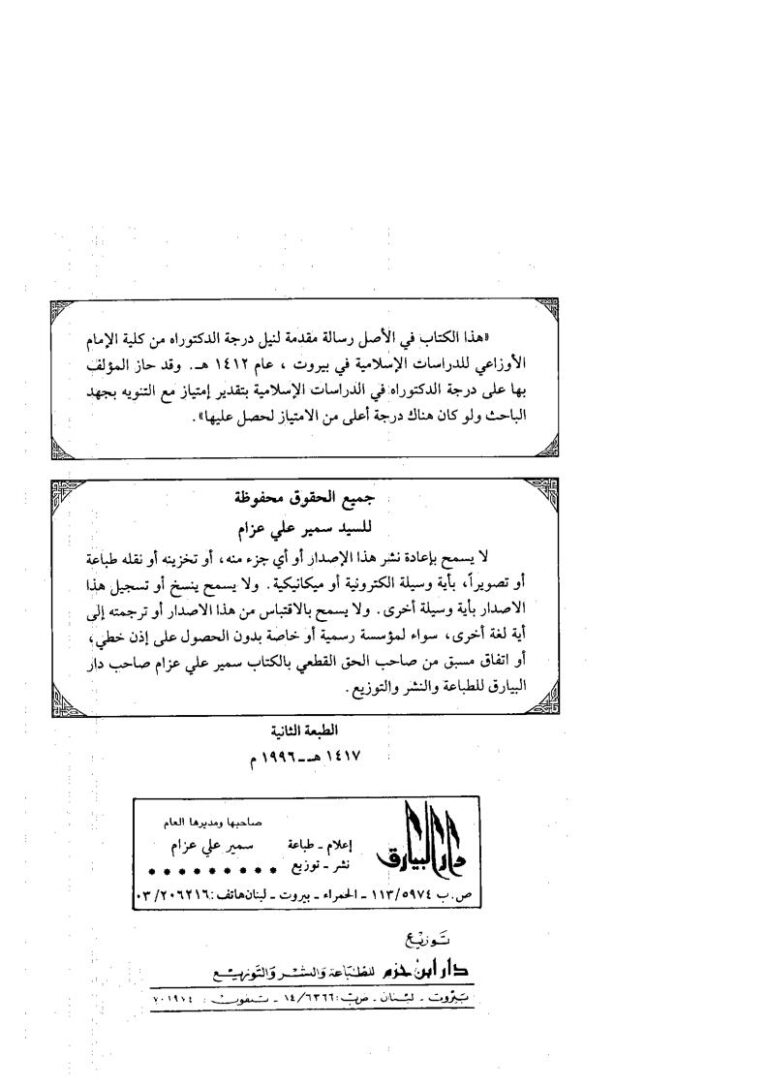 «هذا الكتاب في الأصل رسالة مقدمة لنيل درجة الدكتوراه من كلية الإمام
الأوزاعي للدراسات الإسلامية في بيروت ، عام ١٤١٢ هـ. وقد حاز المؤلف
بها على درجة الدكتوراه في الدراسات الإسلامية بتقدير إمتياز مع التنويه بجهد
الباحث ولو كان هناك درجة أعلى من الامتياز لحصل عليها».
جميع الحقوق محفوظة
للسيد سمير علي عزام
لا يسمح بإعادة نشر هذا الإصدار أو أي جزء منه، أو تخزينه أو نقله طباعة
أو تصويراً، بأية وسيلة الكترونية أو ميكانيكية. ولا يسمح ينسخ أو تسجيل هذا
الاصدار بأية وسيلة أخرى. ولا يسمح بالاقتباس من هذا الاصدار أو ترجمته إلى
أية لغة أخرى، سواء لمؤسسة رسمية أو خاصة بدون الحصول على إذن خطي،
أو اتفاق مسبق من صاحب الحق القطعي بالكتاب سمير علي عزام صاحب دار
البيارق للطباعة والنشر والتوزيع.
الطبعة الثانية
١٤١٧ هـ-١٩٩٦ م
دار البيارق
إعلام - طباعة
نشر - توزيع
صاحبها ومديرها العام
سمير علي عزام
ص.ب ١١٣/٥٩٧٤ - الحمراء - بيروت - لبنان هاتف: ٠٣/٢٠٦٢١٦
توزيع
دار ابن حزم للطباعة والنشر والتوزيع
بيروت - لبنان - ص.ب: ١٤/٦٣٦٦ - تلفون: ٧٠١٩٧٤